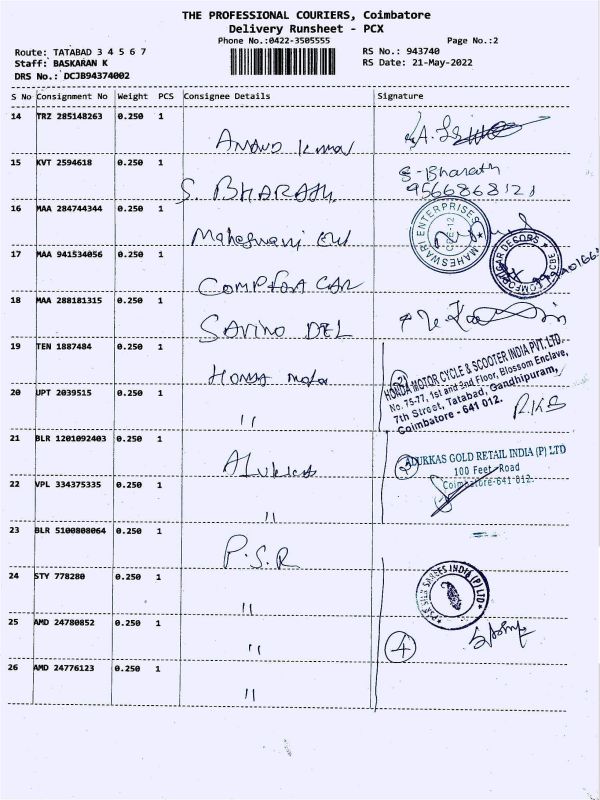 THE PROFESSIONAL COURIERS, Coimbatore
Delivery Runsheet - PCX
Phone No.:0422-3505555
Page No.:2
Route: TATABAD 3 4 5 6 7
RS No.: 943740
Staff: BASKARAN K
RS Date: 21-May-2022
DRS No.: DCJB94374002
S No Consignment No Weight PCS Consignee Details Signature
14 TRZ 285148263 0.250 1
Anand Kumar
15 KVT 2594618 0.250 1
S. BHARATH
S-Bharath
9566868121
16 MAA 284744344 0.250 1
Maheswari
MAHESWARI ENTERPRISES
CBE-12
17 MAA 941534056 0.250 1
COMFORT CAR
COMFORT CAR DECORS CBE
18 MAA 288181315 0.250 1
SAVINO DEL
19 TEN 1887484 0.250 1
Honda Motor
(2)
HONDA MOTOR CYCLE & SCOOTER INDIA PVT. LTD.
No. 75-77, 1st and 2nd Floor, Blossom Enclave,
7th Street, Tatabad, Gandhipuram,
Coimbatore - 641 012.
20 UPT 2039515 0.250 1
"
21 BLR 1201092403 0.250 1
Alukkas
2
ALUKKAS GOLD RETAIL INDIA (P) LTD
100 Feet Road
Coimbatore-641 012.
22 VPL 334375335 0.250 1
"
23 BLR 5100808064 0.250 1
P.S.R
SAREES INDIA (P) LTD
24 STY 778280 0.250 1
"
25 AMD 24780852 0.250 1
"
4
26 AMD 24776123 0.250 1
"